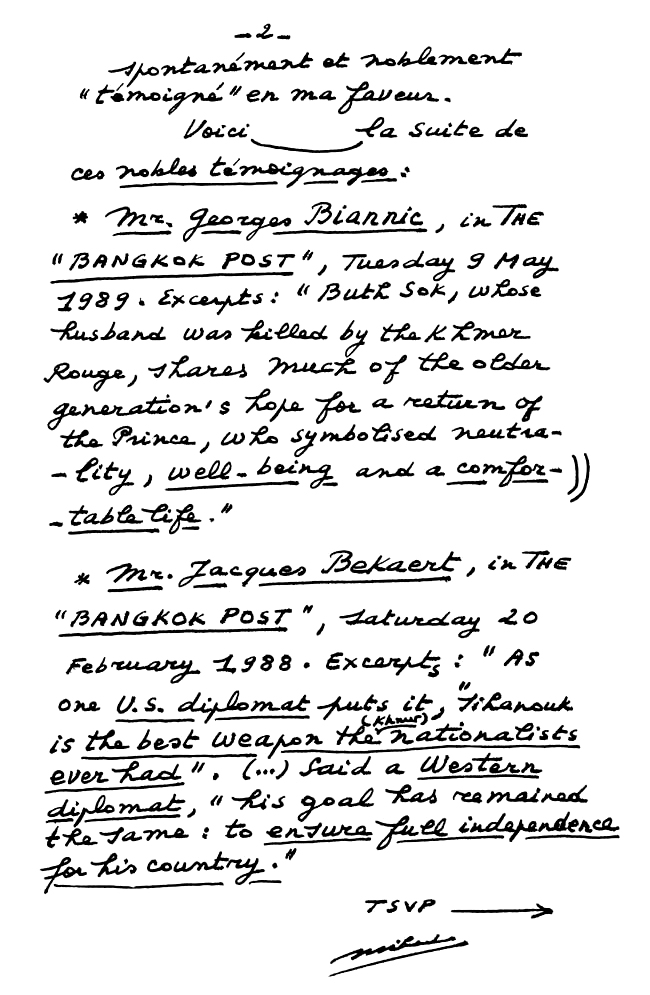 - 2 -
spontanément et noblement
"témoigné" en ma faveur.
Voici la suite de
ces nobles témoignages :
* Mr. Georges Biannic, in THE
"BANGKOK POST", Tuesday 9 May
1989. Excerpts : "Buth Sok, whose
husband was killed by the Khmer
Rouge, shares much of the older
generation's hope for a return of
the Prince, who symbolised neutra-
-lity, well-being and a comfor-))
-table life."
* Mr. Jacques Bekaert, in THE
"BANGKOK POST", Saturday 20
February 1988. Excerpts : "As
one U.S. diplomat puts it, "Sihanouk
(Khmer)
is the best weapon the nationalists
ever had". (...) Said a Western
diplomat, "his goal has remained
the same : to ensure full independence
for his country."
TSVP →